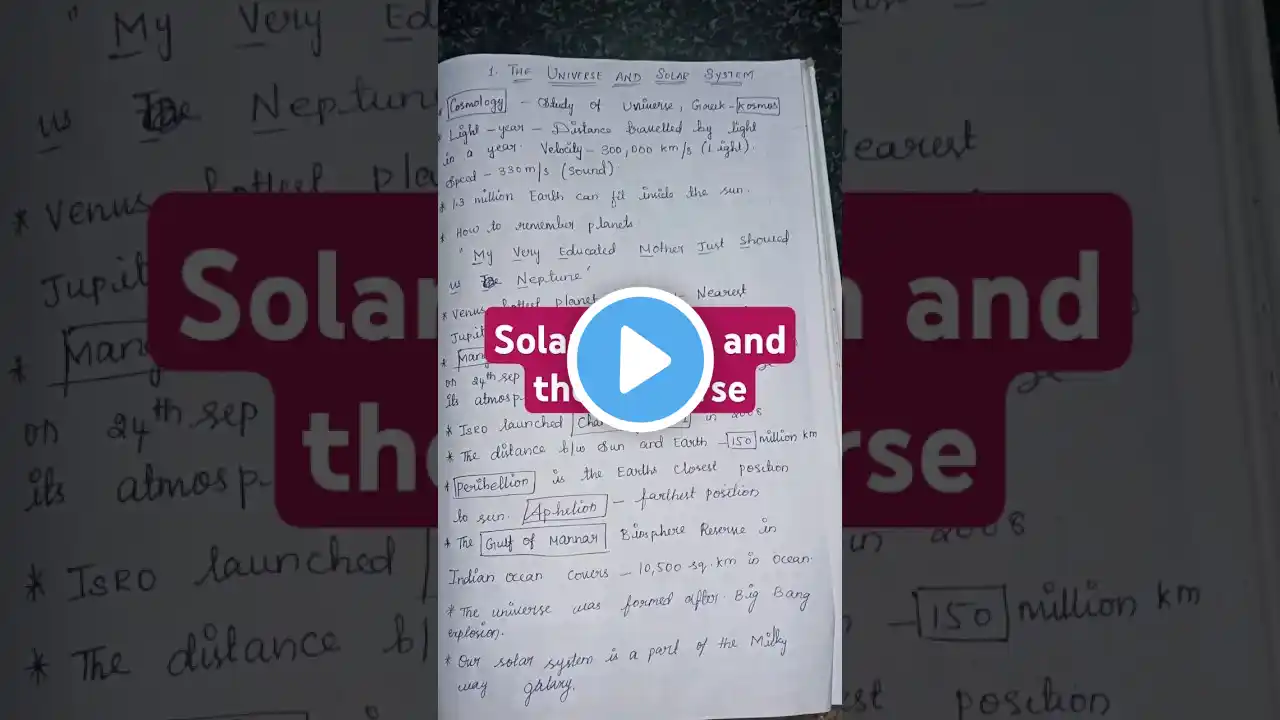 1. THE UNIVERSE AND SOLAR SYSTEM
* Cosmology - Study of Universe, Greek - Kosmos
* Light - year - Distance travelled by light
in a year. Velocity - 300,000 km/s (Light).
Speed - 330m/s (Sound)
* 1.3 million Earth can fit inside the sun.
* How to remember planets
"My Very Educated Mother Just Showed
us The Neptune"
* Venus hottest planet Nearest
Jupit
* Mang
on 24th sep
its atmosp
* ISRO launched Cha in 2008
* The distance b/w Sun and Earth - 150 million km
* Perihellion is the Earths closest position
to sun. Aphelion - farthest position
* The Gulf of Mannar Biosphere Reserve in
Indian ocean covers - 10,500 sq.km in ocean.
* The universe was formed after Big Bang
explosion.
* Our solar system is a part of the Milky
way galaxy.
Solar and
the rse